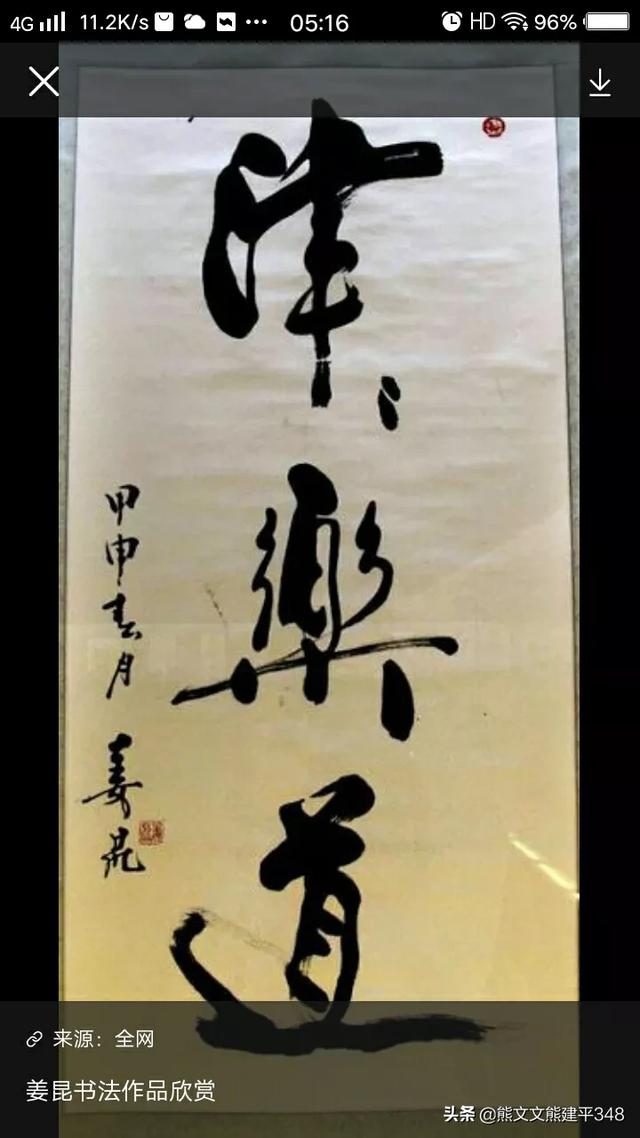 4G 11.2K/s 05:16 HD 96%
津〻樂道
甲申春月 姜昆
来源：全网
姜昆书法作品欣赏
头条 @熊文文熊建平348